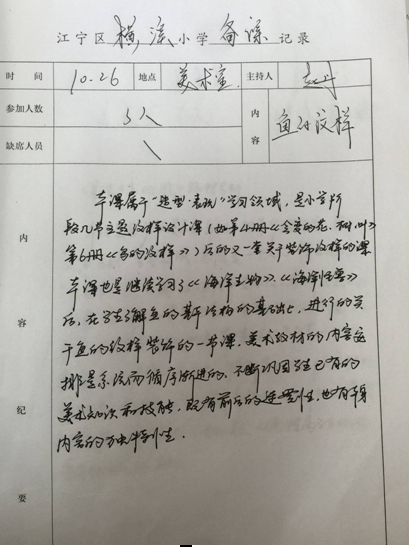 江宁区 横溪 小学 备课 记录
时 间 10.26 地点 美术室 主持人
参加人数 5人 内容 鱼的纹样
缺席人员 \
内容纪要
本课属于“造型·表现”学习领域，是小学阶
段几节主题纹样设计课（如第4册《会变的花、树叶》
第6册《鸟的纹样》）后的又一套关于装饰纹样的课
本课也是继续学习了《海洋生物》、《海洋》
后，在学生了解鱼的基本结构的基础上，进行的关
于鱼的纹样装饰的一节课。美术教材的内容安
排是系统而循序渐进的，不断巩固学生已有的
美术知识和技能，既有前后的连贯性，也有本身
内容的独特性。